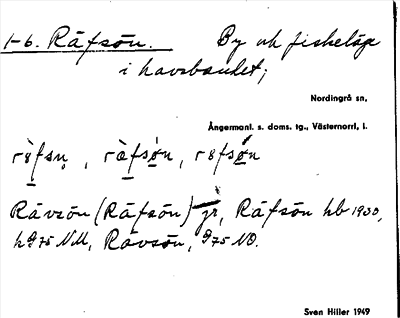 1-6. Räfsön. By och fiskeläge
i havsbandet;
Nordingrå sn,
Ångermanl. s. doms. tg., Västernorrl. l.
Rävsön (Räfsön) jr, Räfsön hb 1900,
h975 NM, Rävsön, 975 NO.
Sven Hiller 1949